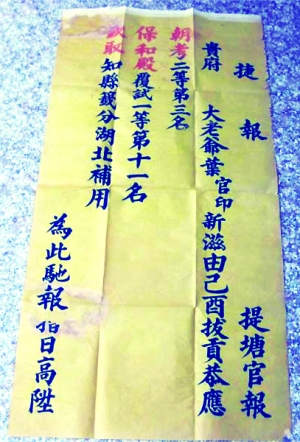 捷報 提塘官報
貴府大老爺葉官印新滋由己酉拔貢恭應
朝考二等第三名
保和殿覆試一等第十一名
欽取知縣籤分湖北補用
為此馳報 指日高陞